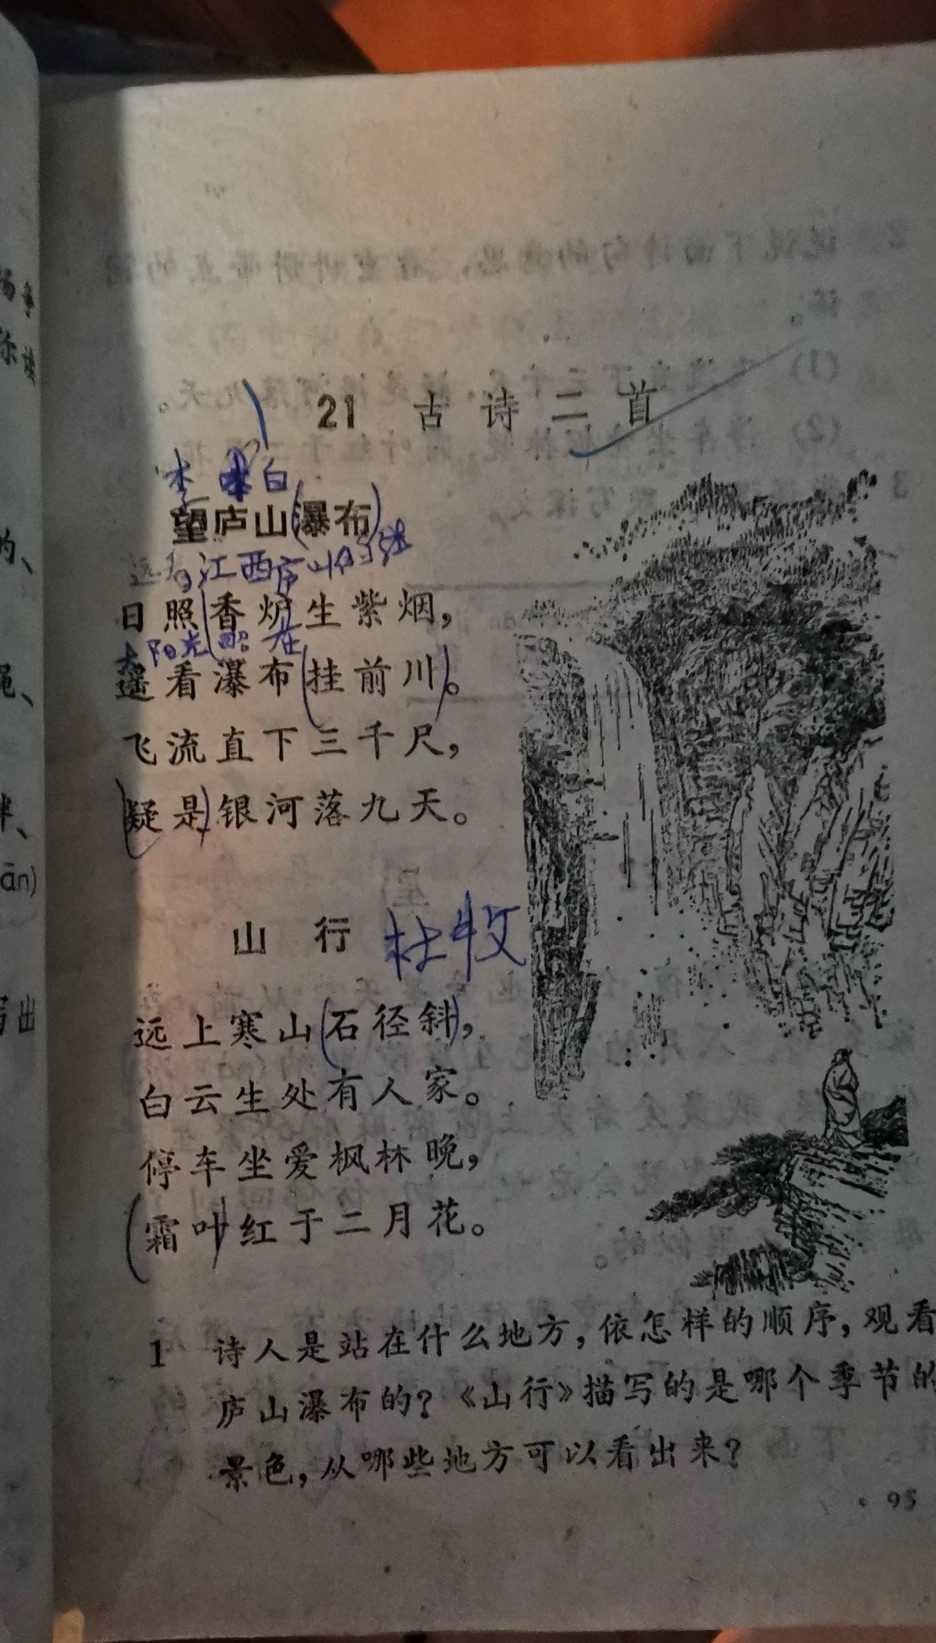 21 古诗二首
李白
望庐山瀑布
远看江西庐山的
日照香炉生紫烟，
太阳光照在
遥看瀑布挂前川。
飞流直下三千尺，
疑是银河落九天。
山行 杜牧
远上寒山石径斜，
白云生处有人家。
停车坐爱枫林晚，
霜叶红于二月花。
1 诗人是站在什么地方，依怎样的顺序，观看
庐山瀑布的？《山行》描写的是哪个季节的
景色，从哪些地方可以看出来？
95
的、
ān)
写出